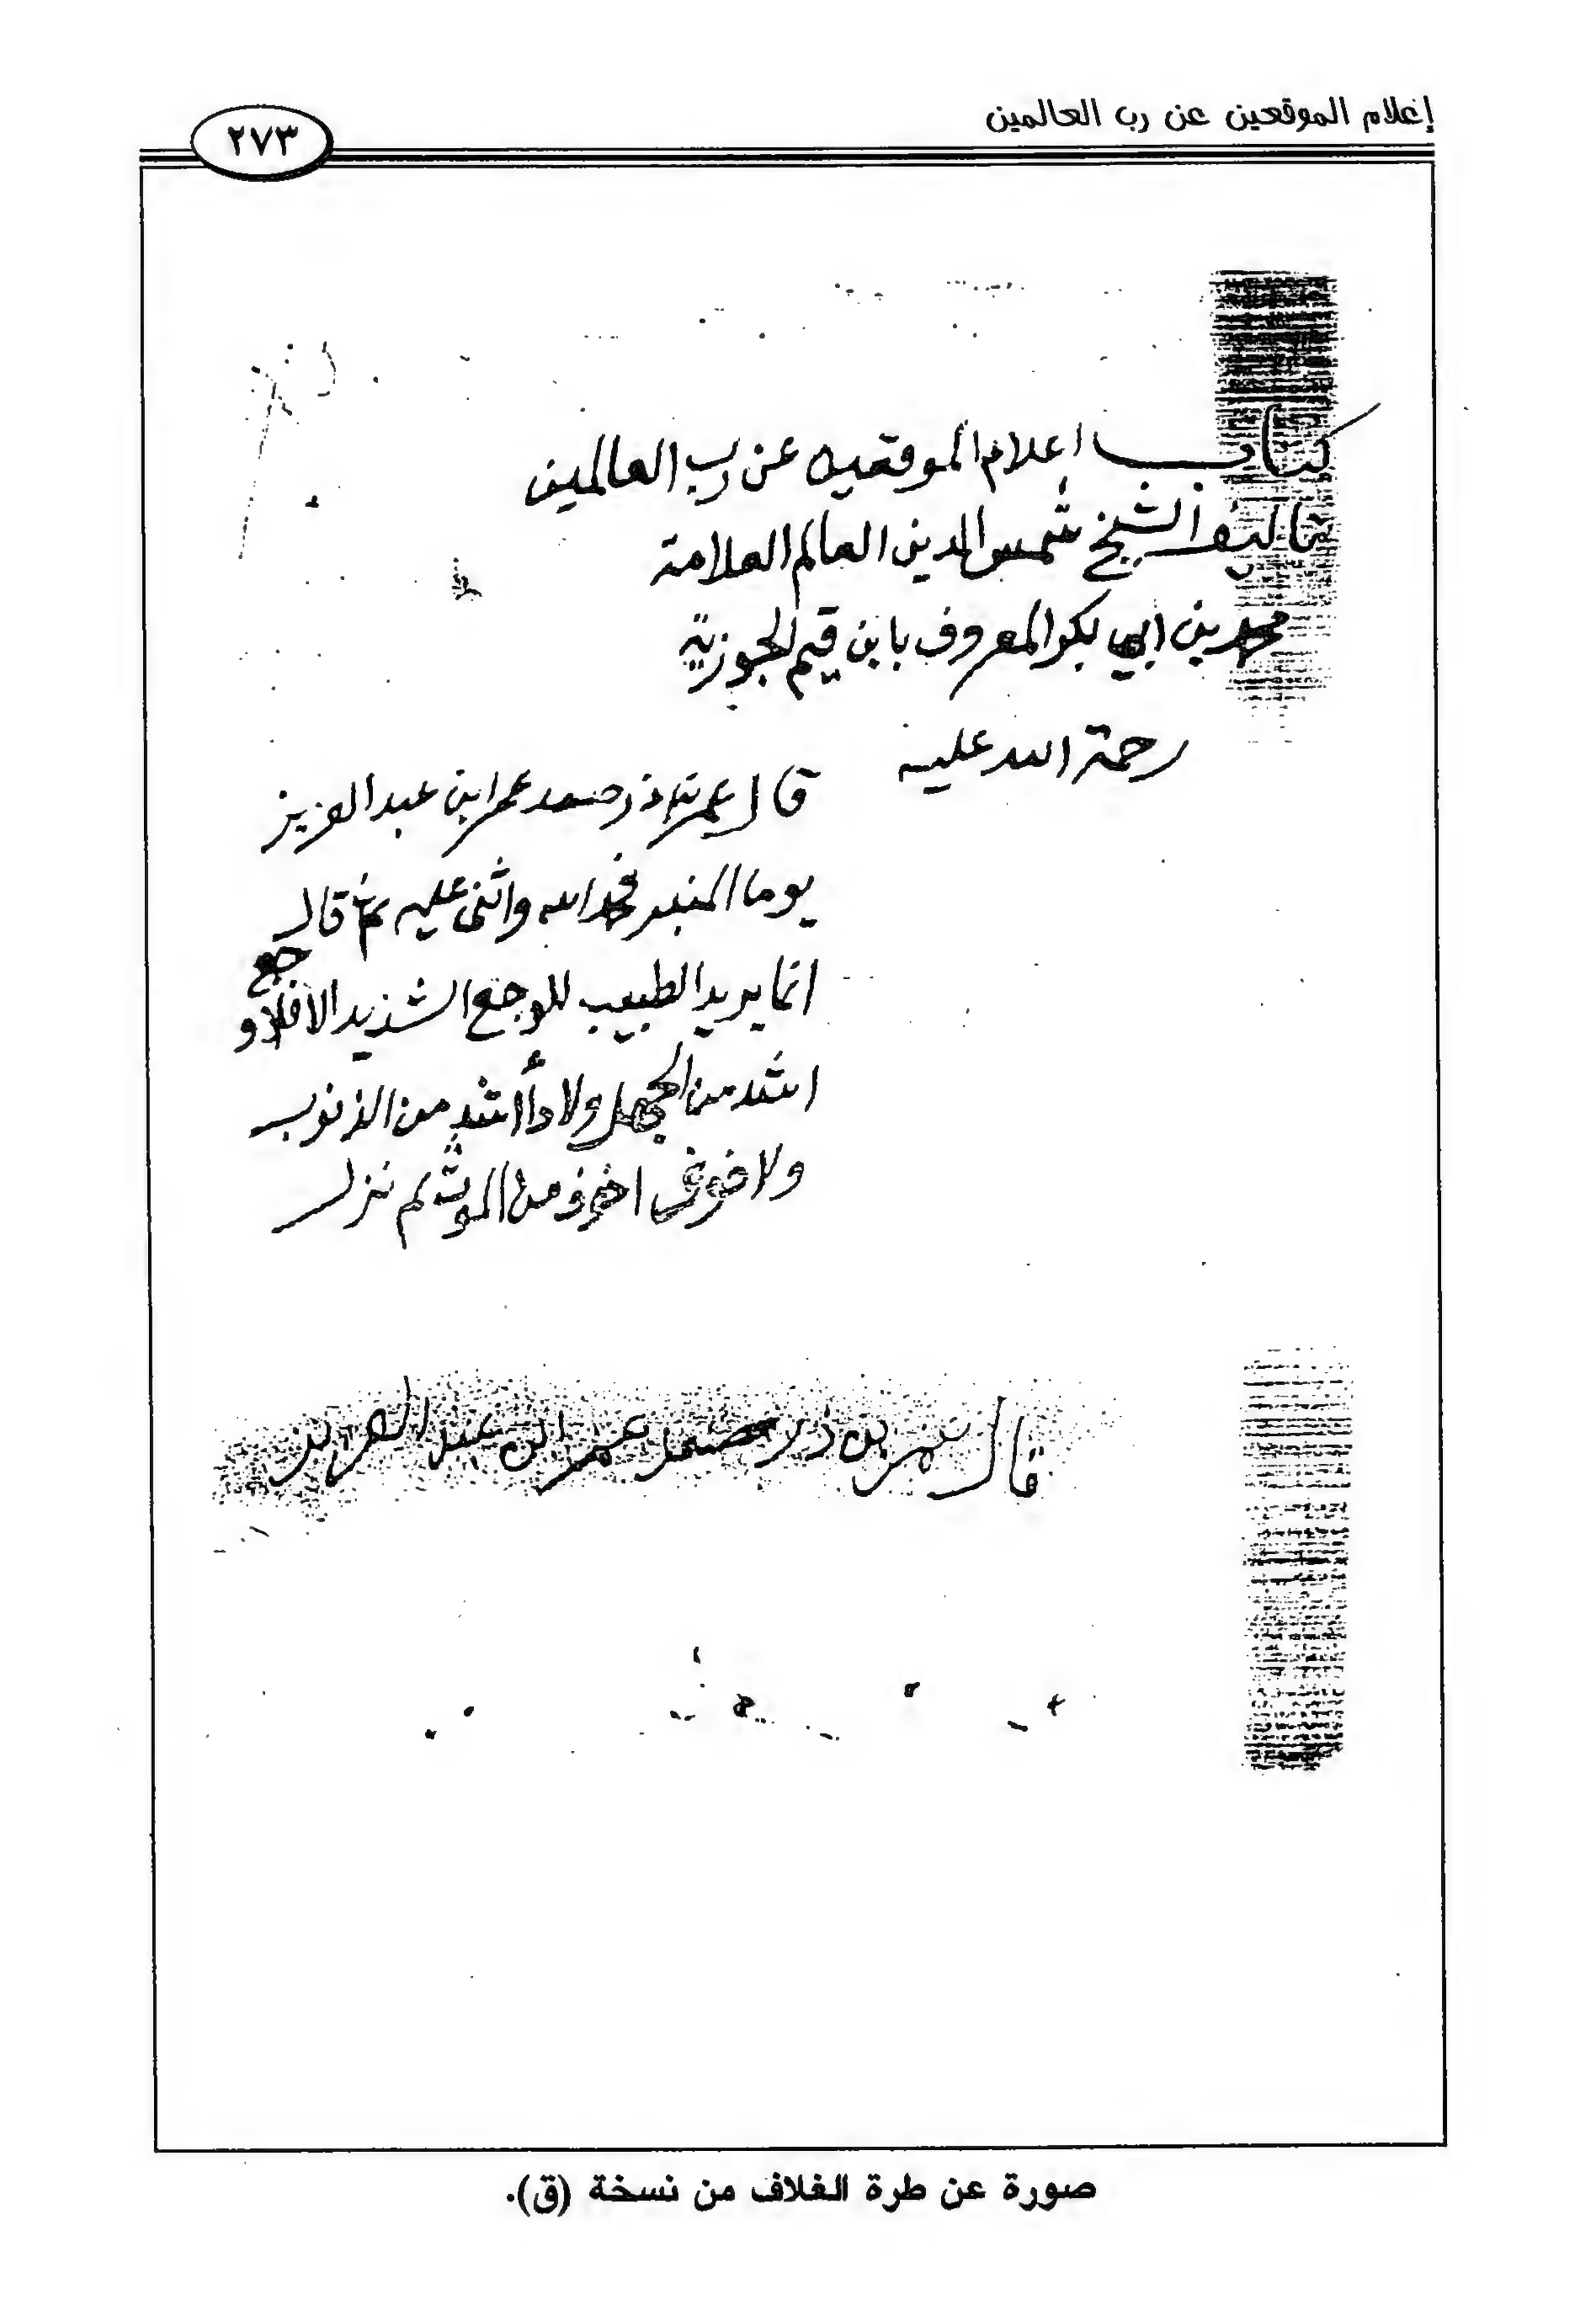 إعلام الموقعين عن رب العالمين
٢٧٣
كتاب اعلام الموقعين عن رب العالمين
تاليف الشيخ شمس الدين العالم العلامة
محمد بن ابي بكر المعروف بابن قيم الجوزية
رحمة الله عليه
قال عمر بن ذر صعد عمر ابن عبد العزيز
يوما المنبر فحمد الله واثنى عليه ثم قال
انما يريد الطبيب للوجع الشديد الا فلا وجع
اشد من الجهل ولا داأ اشد من الذنوب
ولا خوف اخوف من الموت ثم نزل
قال عمر بن ذر صعد عمر ابن عبد العزيز
صورة عن طرة الغلاف من نسخة (ق).